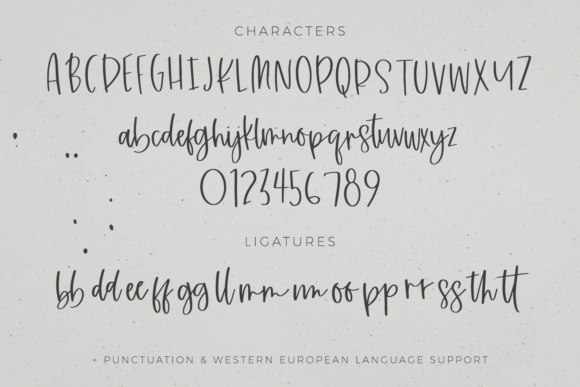 CHARACTERS
ABCDEFGHIJKLMNOPQRSTUVWXYZ
abcdefghijklmnopqrstuvwxyz
0123456789
LIGATURES
bb dd ee ff gg ll mm nn oo pp rr ss th tt
+ PUNCTUATION & WESTERN EUROPEAN LANGUAGE SUPPORT